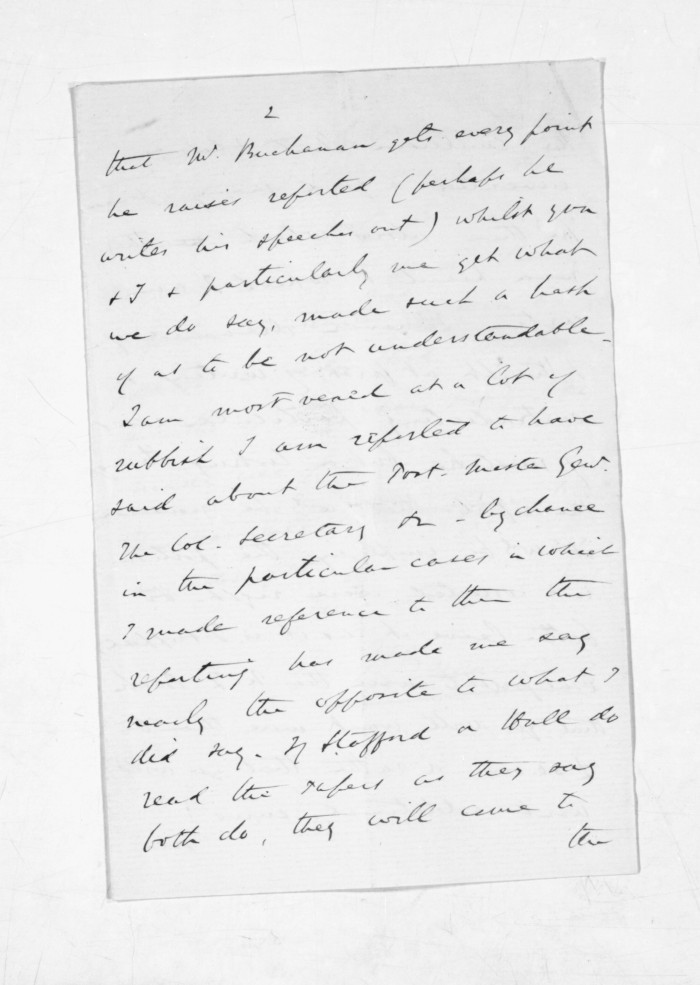 2
that Mr. Buchanan gets every point
he raises reported (perhaps he
writes his speeches out) whilst you
& I & particularly me get what
we do say, made such a hash
of as to be not understandable -
I am most vexed at a lot of
rubbish I am reported to have
said about the Post. Master Genl.
The Col. Secretary &c - by chance
in the particular cases in which
I made reference to them the
reporting has made me say
nearly the opposite to what I
did say - If Stafford or Hall do
read the papers as they say
both do, they will come to
the